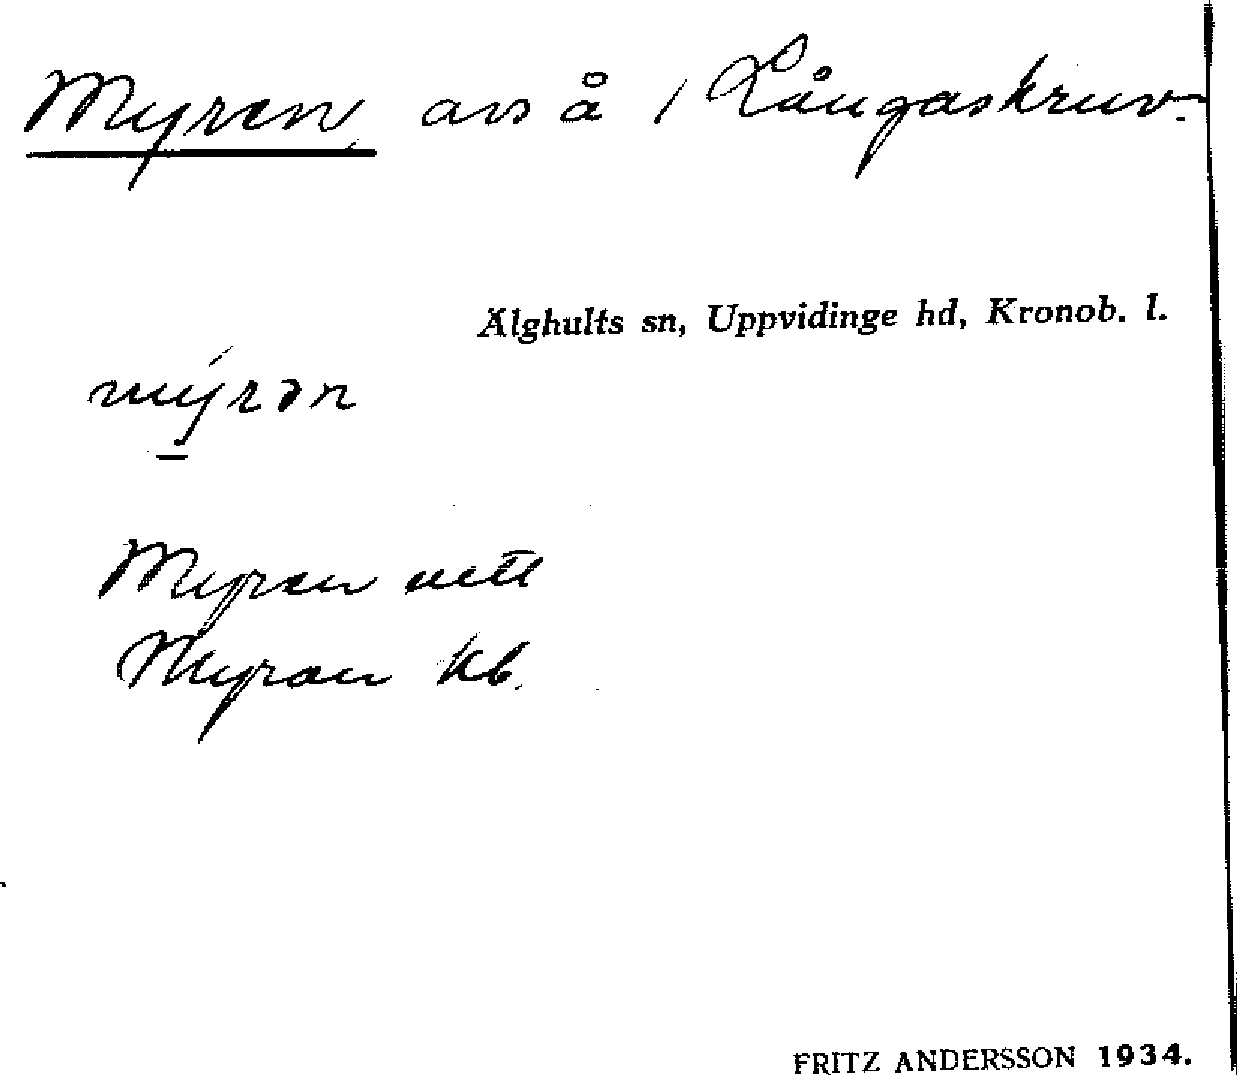 Myren avs å Långaskruv.
Älghults sn, Uppvidinge hd, Kronob. l.
mýrən
Myren
Myran kb.
FRITZ ANDERSSON 1934.